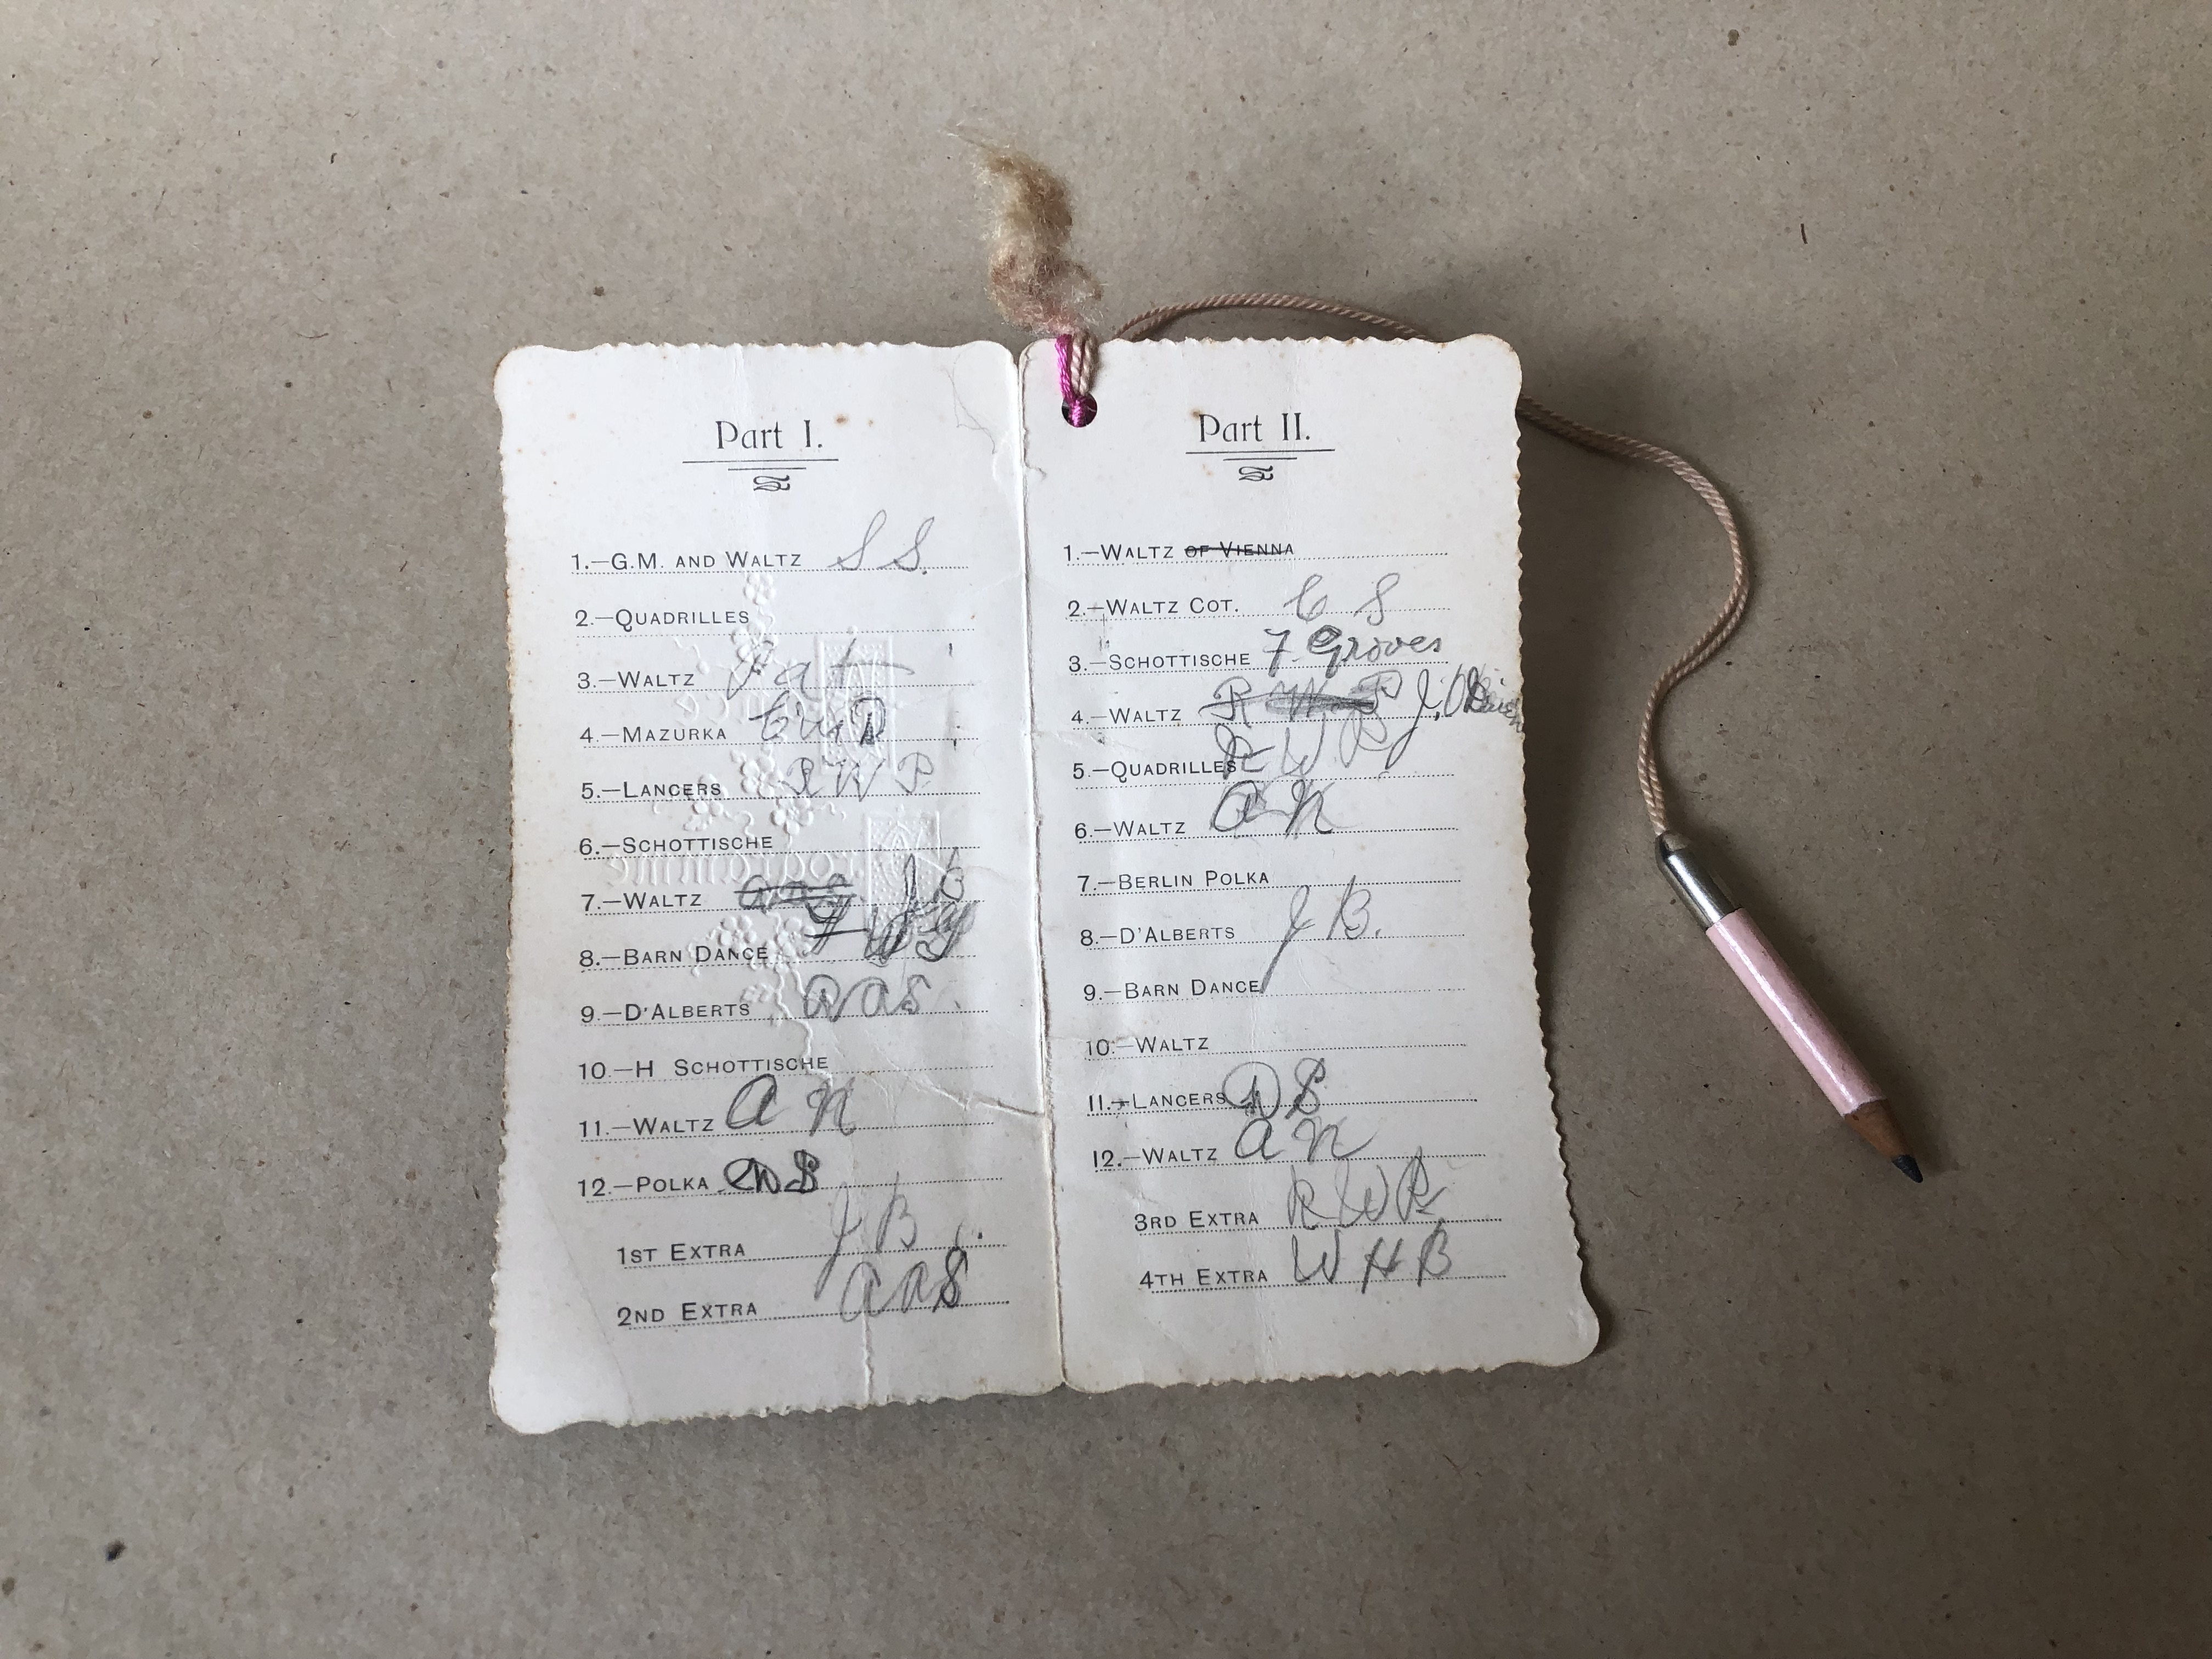 Part I.
1.—G.M. AND WALTZ S S.
2.—QUADRILLES
3.—WALTZ Pat
4.—MAZURKA
5.—LANCERS R W P
6.—SCHOTTISCHE
7.—WALTZ J B
8.—BARN DANCE
9.—D'ALBERTS A A S
10.—H SCHOTTISCHE
11.—WALTZ A N
12.—POLKA D S
1ST EXTRA J B
2ND EXTRA A A S
Part II.
1.—WALTZ OF VIENNA
2.—WALTZ COT. C S
3.—SCHOTTISCHE F. Groves
4.—WALTZ R W P J.
5.—QUADRILLES R W P
6.—WALTZ A N
7.—BERLIN POLKA
8.—D'ALBERTS J B.
9.—BARN DANCE
10.—WALTZ
11.—LANCERS D S
12.—WALTZ A N
3RD EXTRA R W P
4TH EXTRA W H B